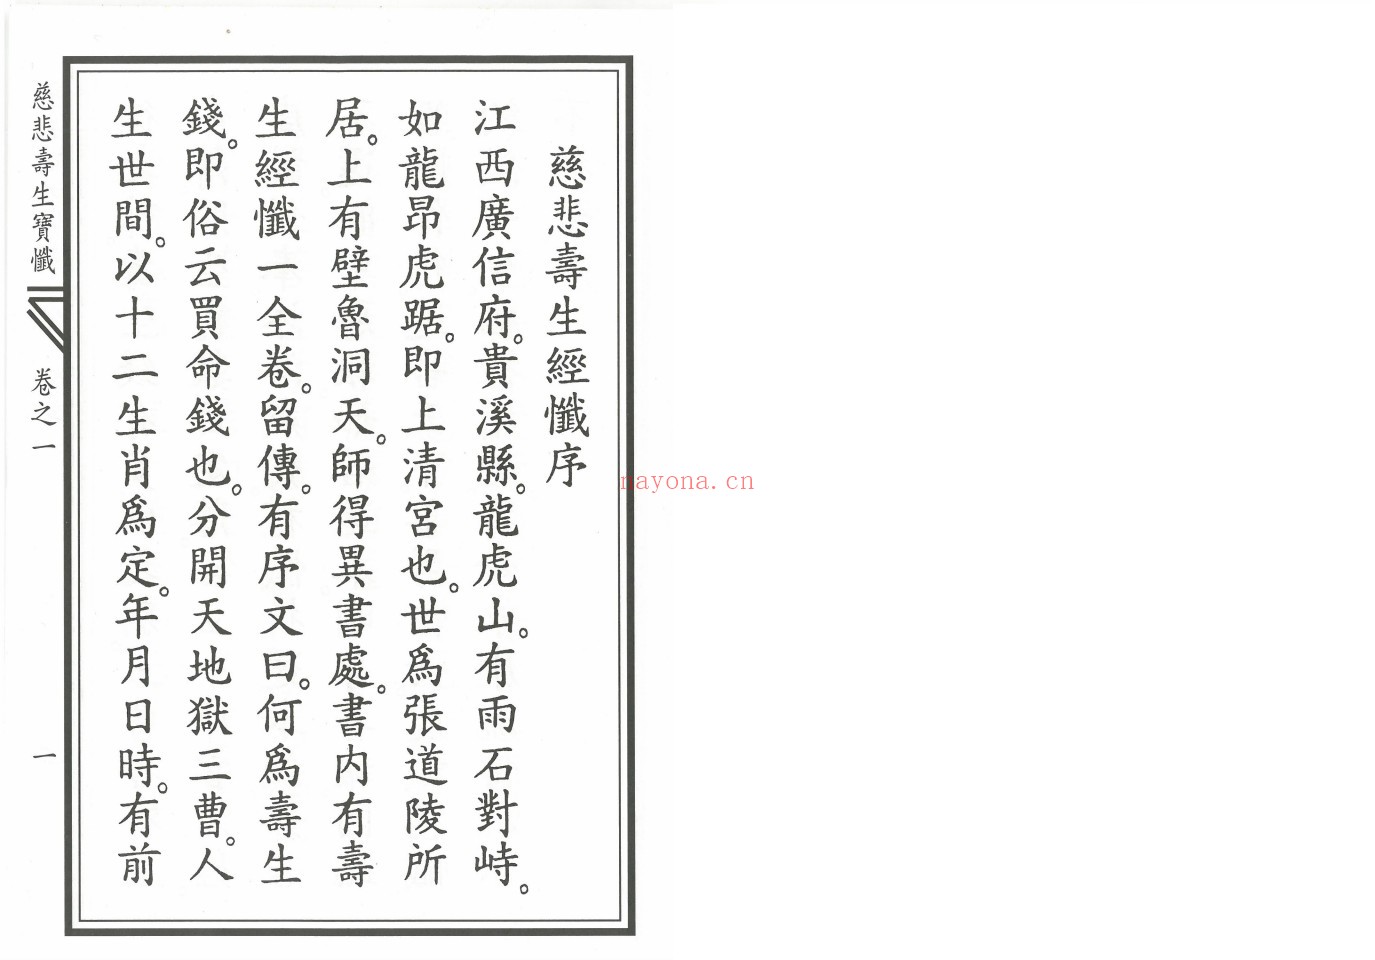 慈悲壽生經懺序
江西廣信府。貴溪縣。龍虎山。有雨石對峙。
如龍昂虎踞。即上清宮也。世爲張道陵所
居。上有壁魯洞天。師得異書處。書内有壽
生經懺一全卷。留傳。有序文曰。何爲壽生
錢。即俗云買命錢也。分開天地獄三曹。人
生世間。以十二生肖爲定。年月日時。有前
慈悲壽生寶懺
卷之一
一
nayona.cn